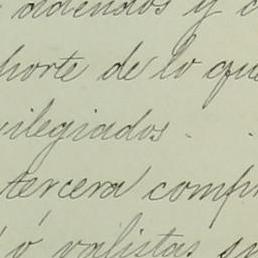 adendos y c
porte de lo que
vilegiados.
tercera comp
ó valistas su